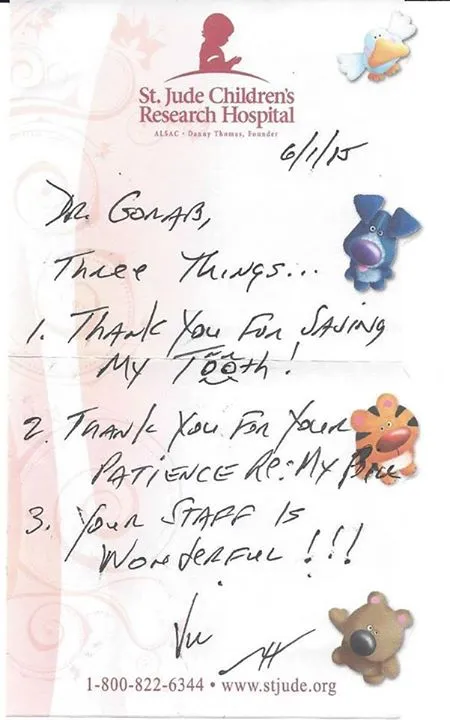 St. Jude Children's
Research Hospital
ALSAC • Danny Thomas, Founder
6/1/15
DR. GORAB,
Three Things...
1. THANK YOU FOR SAVING
MY TOOTH!
2. THANK YOU FOR YOUR
PATIENCE Re: MY BILL
3. YOUR STAFF IS
WONDERFUL!!!
1-800-822-6344 • www.stjude.org